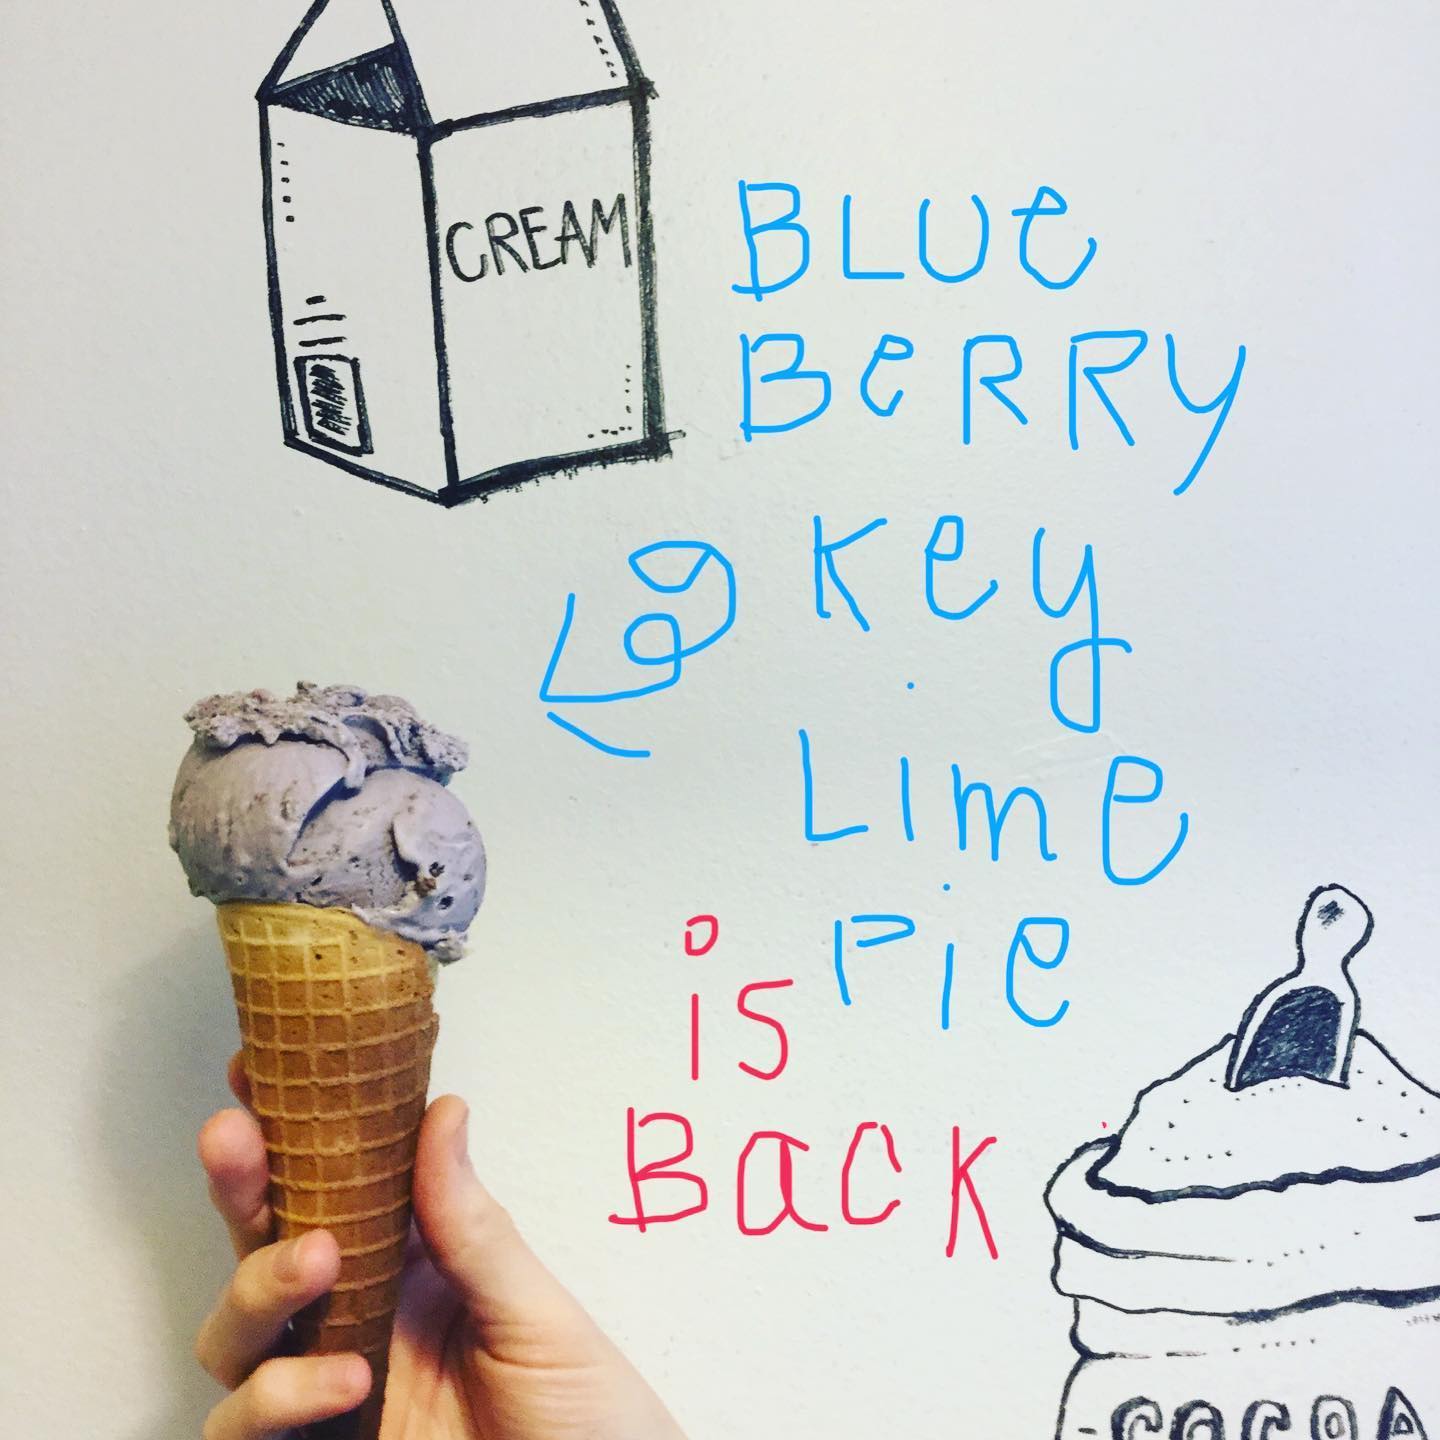 CREAM
BLUe
BeRRY
Key
Lime
Pie
is
Back
COCOA